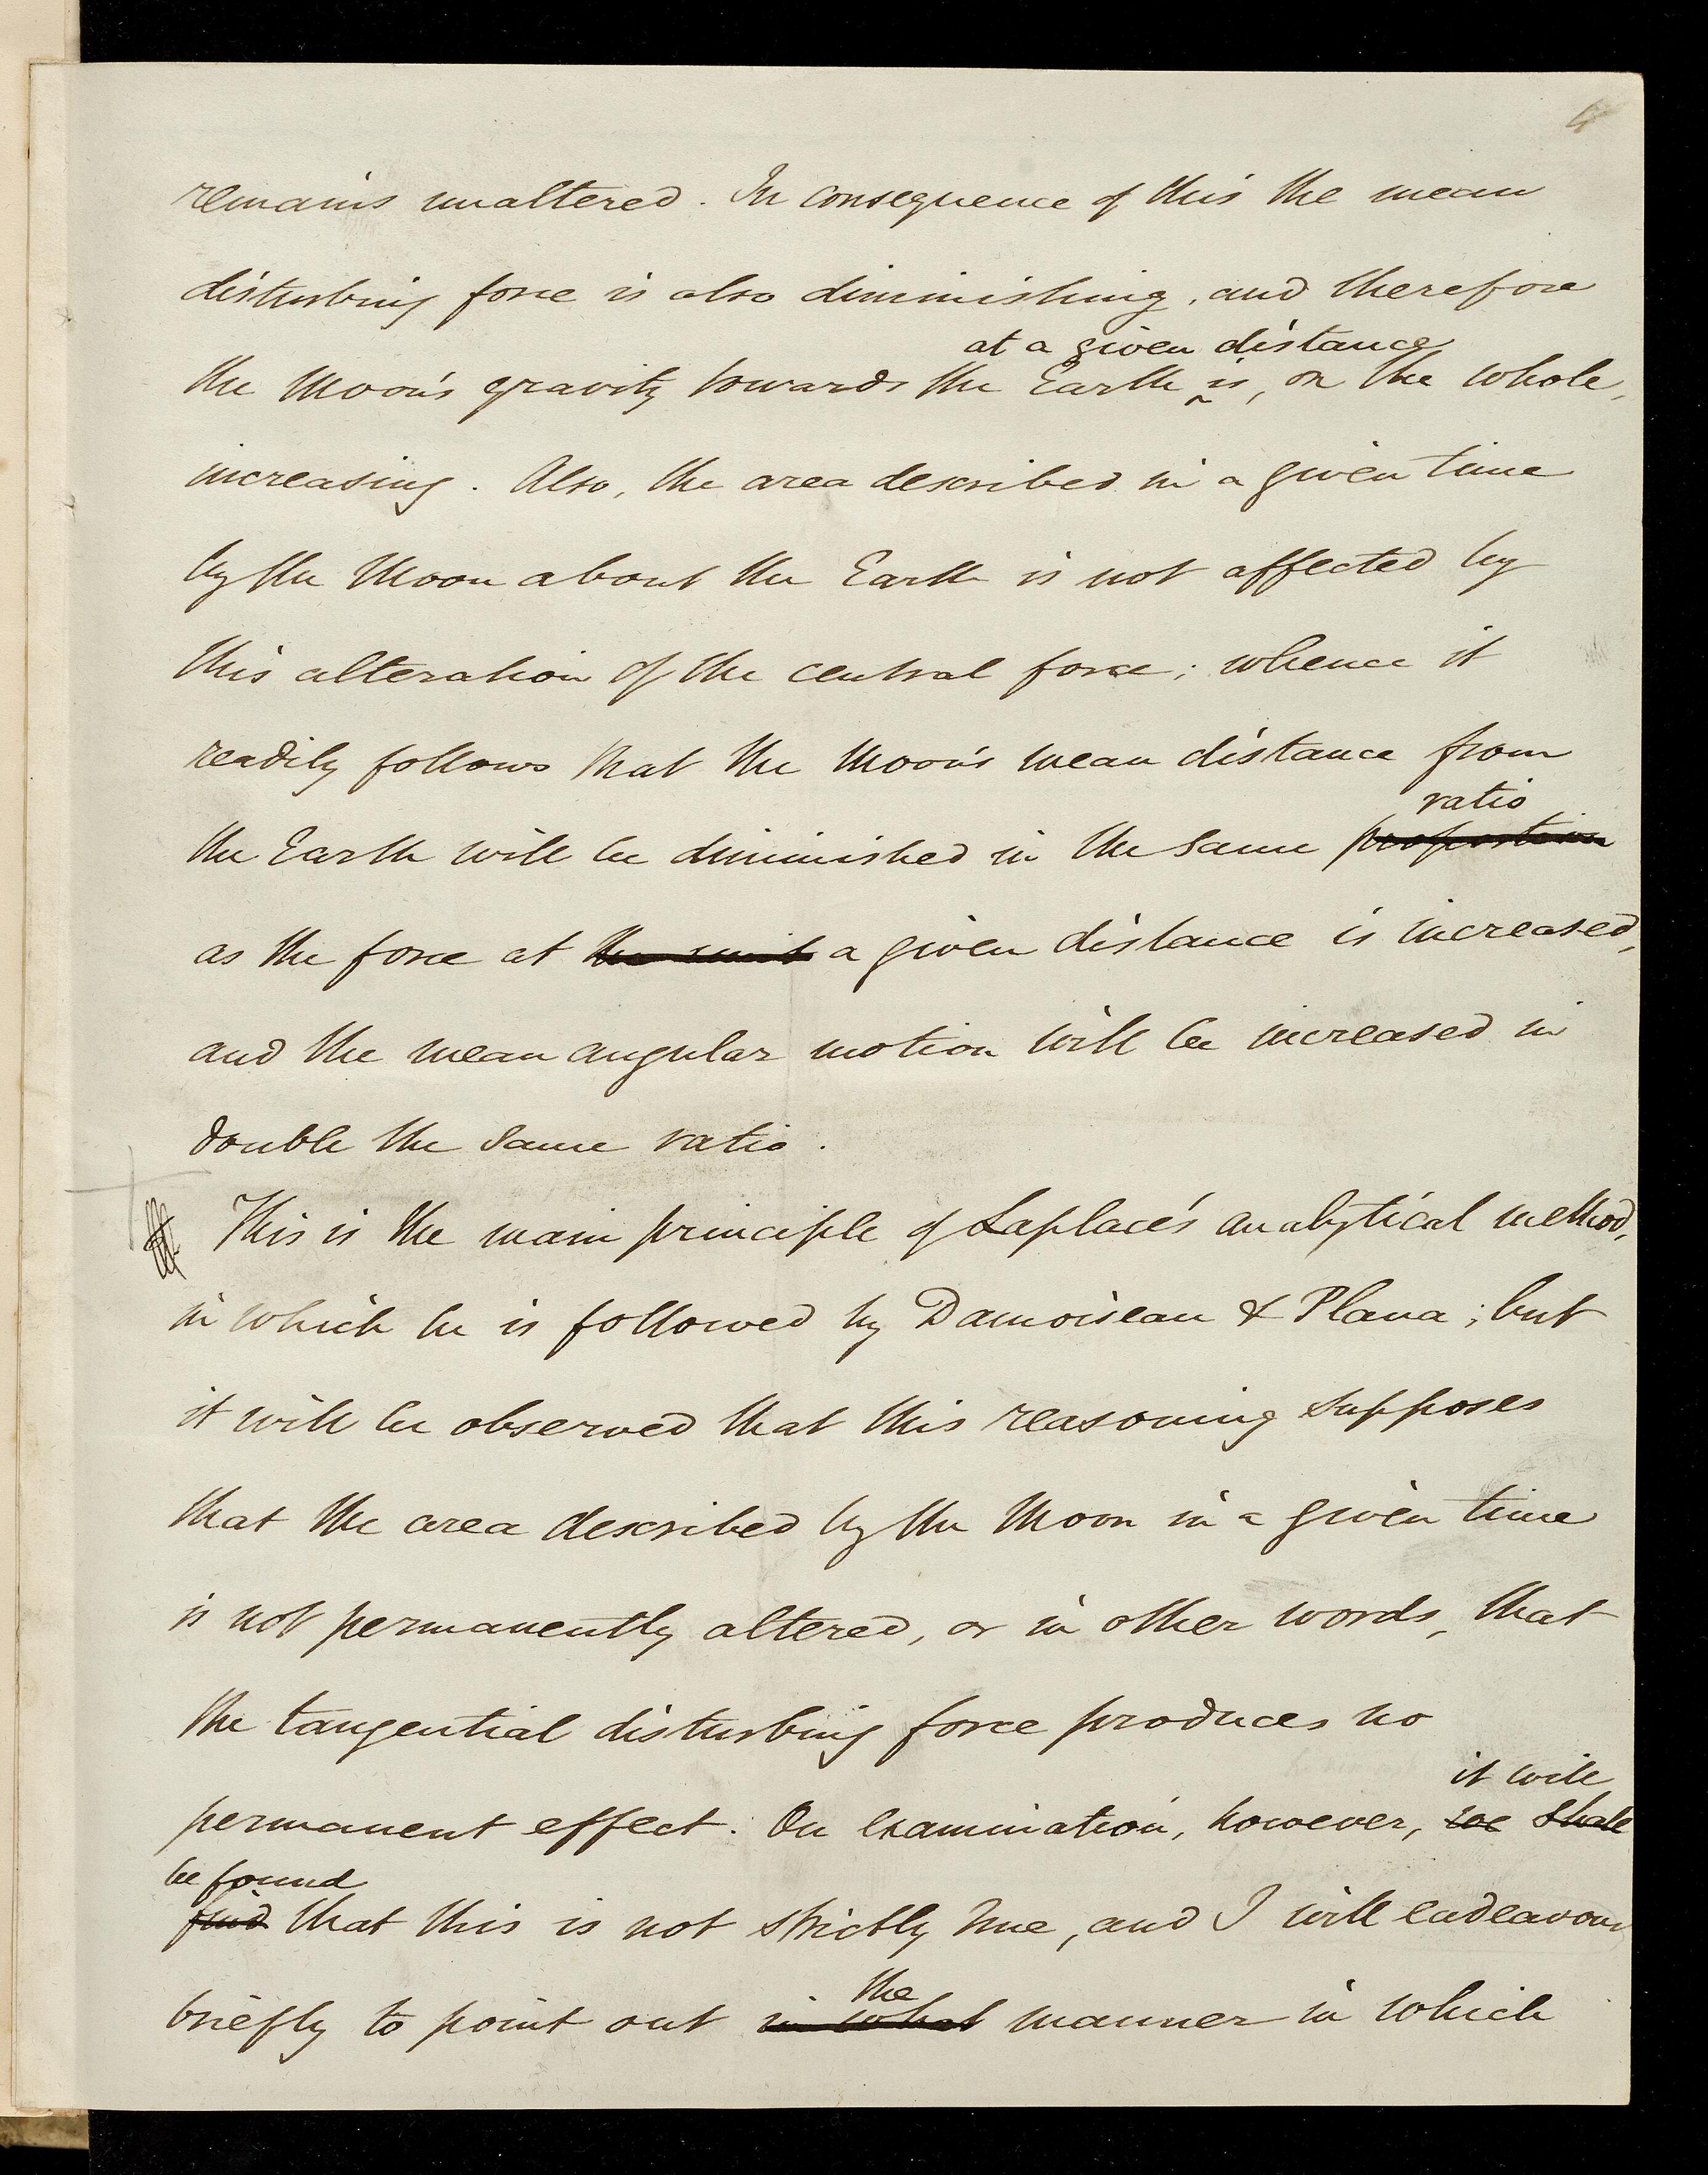 4
remains unaltered. In consequence of this the mean
disturbing force is also diminishing, and therefore
at a given distance
the Moon's gravity towards the Earth ‸ is, on the whole,
increasing. Also, the area described in a given time
by the Moon about the Earth is not affected by
this alteration of the central force; whence it
readily follows that the Moon's mean distance from
ratio
the Earth will be diminished in the same proportion
as the force at the unit a given distance is increased,
and the mean angular motion will be increased in
double the same ratio.
This is the main principle of Laplace's analytical method,
in which he is followed by Damoiseau & Plana; but
it will be observed that this reasoning supposes
that the area described by the Moon in a given time
is not permanently altered, or in other words, that
the tangential disturbing force produces no
it will
permanent effect. On examination, however, we shall
be found
find that this is not strictly true, and I will endeavour
the
briefly to point out in what manner in which